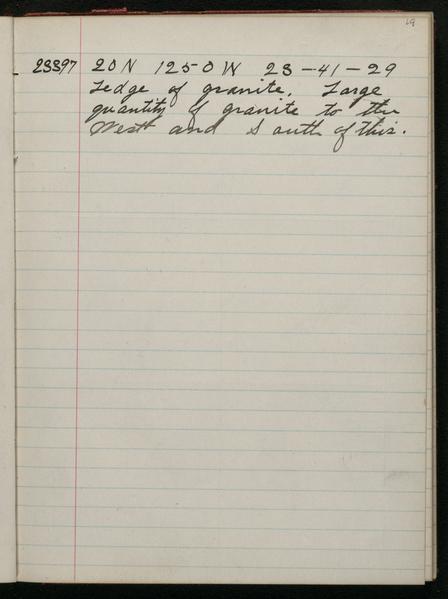 19
23397 20 N 1250 W 23-41-29
Ledge of granite. Large
quantity of granite to the
West and South of this.